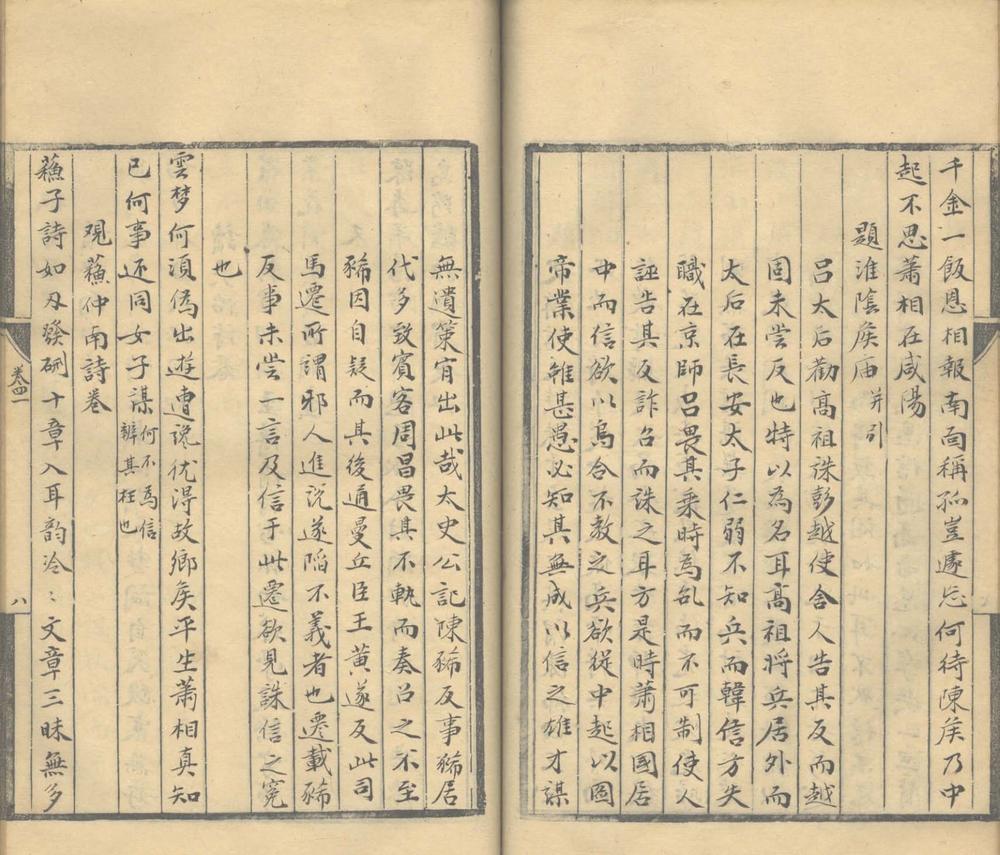 千金一飯恩相報南面稱孤豈遽忘何待陳矦乃中
起不思蕭相在咸陽
題淮陰矦庙并引
呂太后勸髙祖誅彭越使舍人告其反而越
固未尝反也特以為名耳髙祖将兵居外而
太后在長安太子仁弱不知兵而韓信方失
職在京師呂畏其乘時為乱而不可制使人
誣告其反詐召而誅之耳方是時蕭相國居
中而信欲以烏合不教之兵欲從中起以圖
帝業使雖甚愚必知其無成以信之雄才謀
無遺策肯出此哉太史公記陳豨反事豨居
代多致賓客周昌畏其不軌而奏召之不至
豨因自疑而其後逎曼丘臣王黄遂反此司
馬遷所謂邪人進説遂陷不義者也遷載豨
反事未尝一言及信于此遷欲見誅信之寃
也
雲梦何須偽出遊遭讒犹得故鄉矦平生蕭相真知
已何事还同女子謀何不為信辨其枉也
观蘓仲南詩巻
蘓子詩如刃發硎十章入耳韵泠〻文章三昧無多
卷四
八